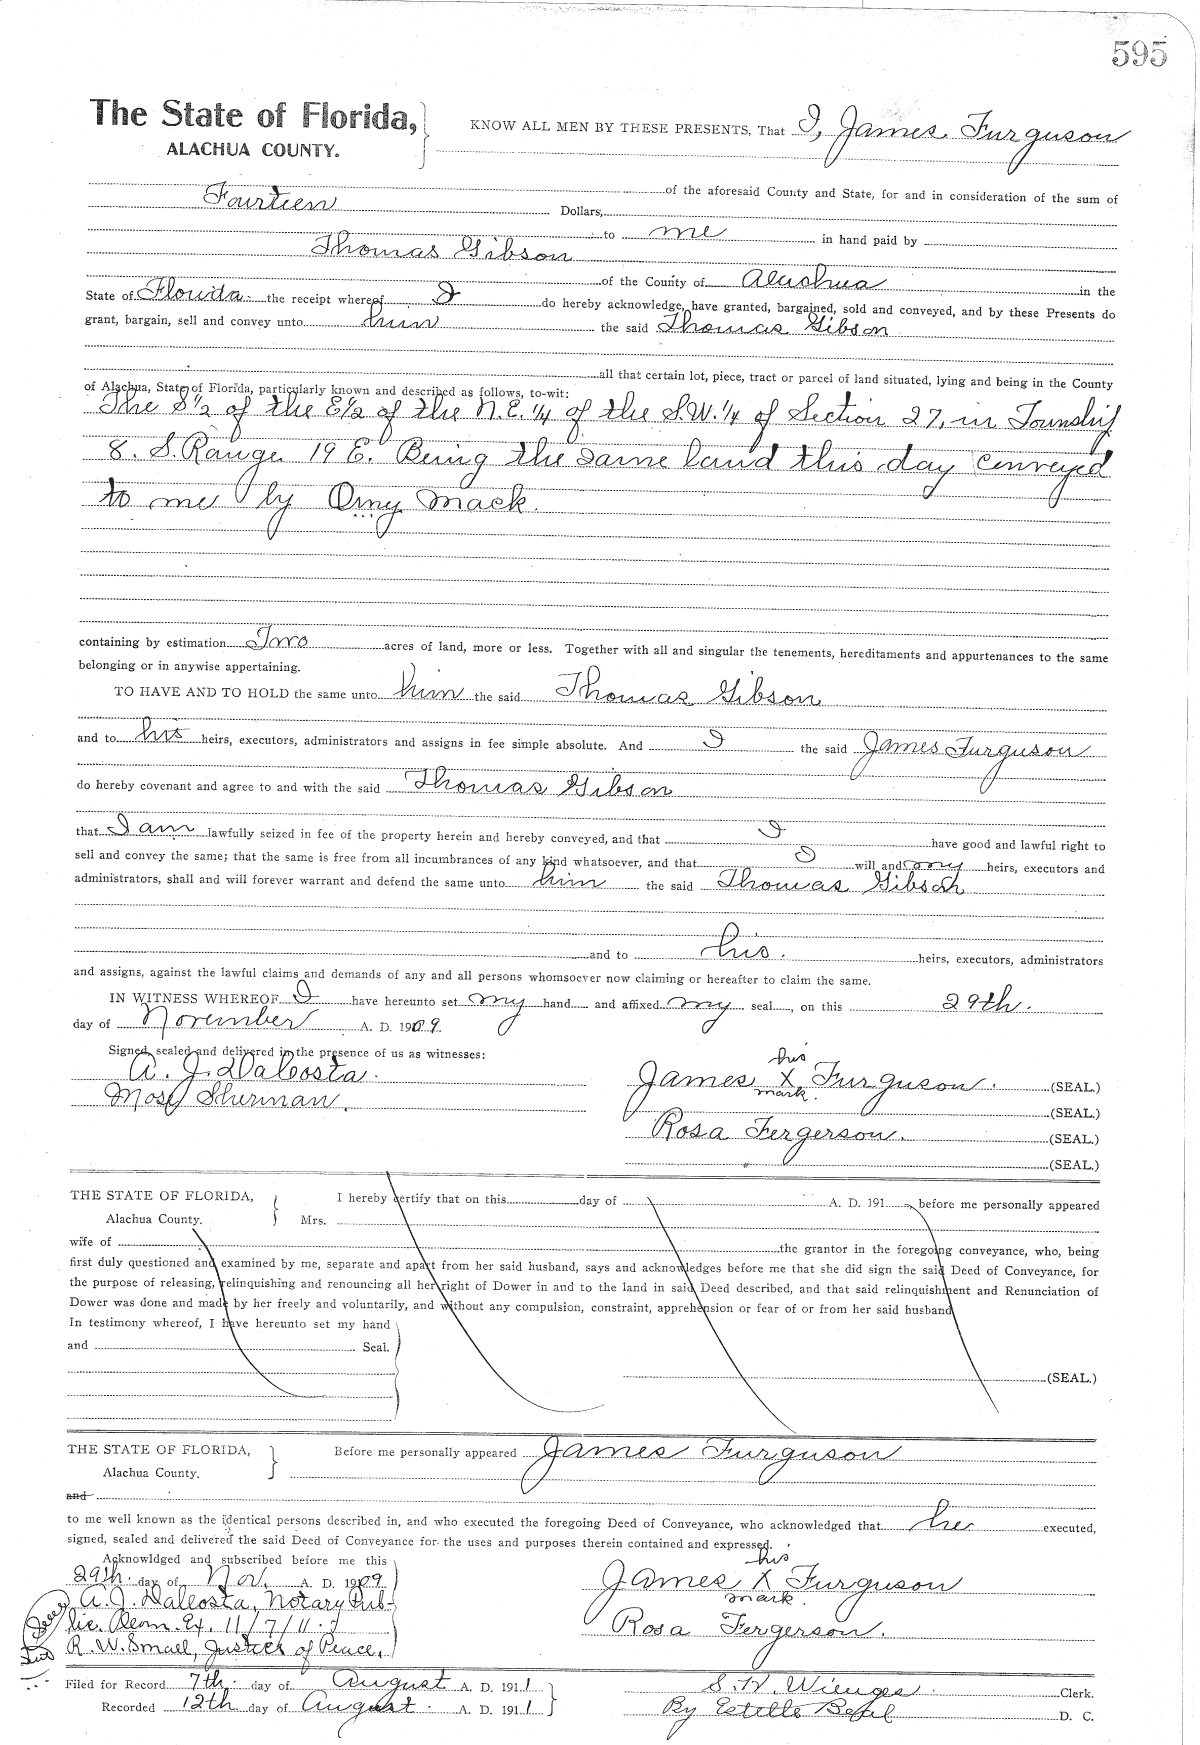 595
The State of Florida,
ALACHUA COUNTY.
KNOW ALL MEN BY THESE PRESENTS, That I, James Furguson
of the aforesaid County and State, for and in consideration of the sum of
Fourteen Dollars,
to me in hand paid by
Thomas Gibson
of the County of Alachua in the
State of Florida. the receipt whereof I do hereby acknowledge, have granted, bargained, sold and conveyed, and by these Presents do
grant, bargain, sell and convey unto him the said Thomas Gibson
all that certain lot, piece, tract or parcel of land situated, lying and being in the County
of Alachua, State of Florida, particularly known and described as follows, to-wit:
The S½ of the E½ of the N.E.¼ of the S.W.¼ of Section 27, in Township
8. S. Range 19 E. Being the same land this day conveyed
to me by Omy Mack.
containing by estimation Two acres of land, more or less. Together with all and singular the tenements, hereditaments and appurtenances to the same
belonging or in anywise appertaining.
TO HAVE AND TO HOLD the same unto him the said Thomas Gibson
and to his heirs, executors, administrators and assigns in fee simple absolute. And I the said James Furguson
do hereby covenant and agree to and with the said Thomas Gibson
that I am lawfully seized in fee of the property herein and hereby conveyed, and that I have good and lawful right to
sell and convey the same; that the same is free from all incumbrances of any kind whatsoever, and that I will and my heirs, executors and
administrators, shall and will forever warrant and defend the same unto him the said Thomas Gibson
and to his. heirs, executors, administrators
and assigns, against the lawful claims and demands of any and all persons whomsoever now claiming or hereafter to claim the same.
IN WITNESS WHEREOF I have hereunto set my hand and affixed my seal, on this 29th.
day of November A. D. 1909.
Signed, sealed and delivered in the presence of us as witnesses:
A. J. DaCosta.
Mose Sherman.
his
James X Furguson. (SEAL.)
mark.
(SEAL.)
Rosa Fergerson. (SEAL.)
(SEAL.)
THE STATE OF FLORIDA,
Alachua County.
I hereby certify that on this day of A. D. 191 , before me personally appeared
Mrs.
wife of the grantor in the foregoing conveyance, who, being
first duly questioned and examined by me, separate and apart from her said husband, says and acknowledges before me that she did sign the said Deed of Conveyance, for
the purpose of releasing, relinquishing and renouncing all her right of Dower in and to the land in said Deed described, and that said relinquishment and Renunciation of
Dower was done and made by her freely and voluntarily, and without any compulsion, constraint, apprehension or fear of or from her said husband
In testimony whereof, I have hereunto set my hand
and Seal.
(SEAL.)
THE STATE OF FLORIDA,
Alachua County.
Before me personally appeared James Furguson
and
to me well known as the identical persons described in, and who executed the foregoing Deed of Conveyance, who acknowledged that he executed,
signed, sealed and delivered the said Deed of Conveyance for the uses and purposes therein contained and expressed.
Acknowldged and subscribed before me this
29th. day of Nov. A. D. 1909
A. J. DaCosta, Notary Pub-
lic. Ex. 11/7/11.
R. W. Small, Justice of Peace,
his
James X Furguson
mark.
Rosa Fergerson.
Filed for Record 7th. day of August A. D. 1911
Recorded 12th day of August. A. D. 1911
S. H. Wienges. Clerk.
By Estelle D. C.